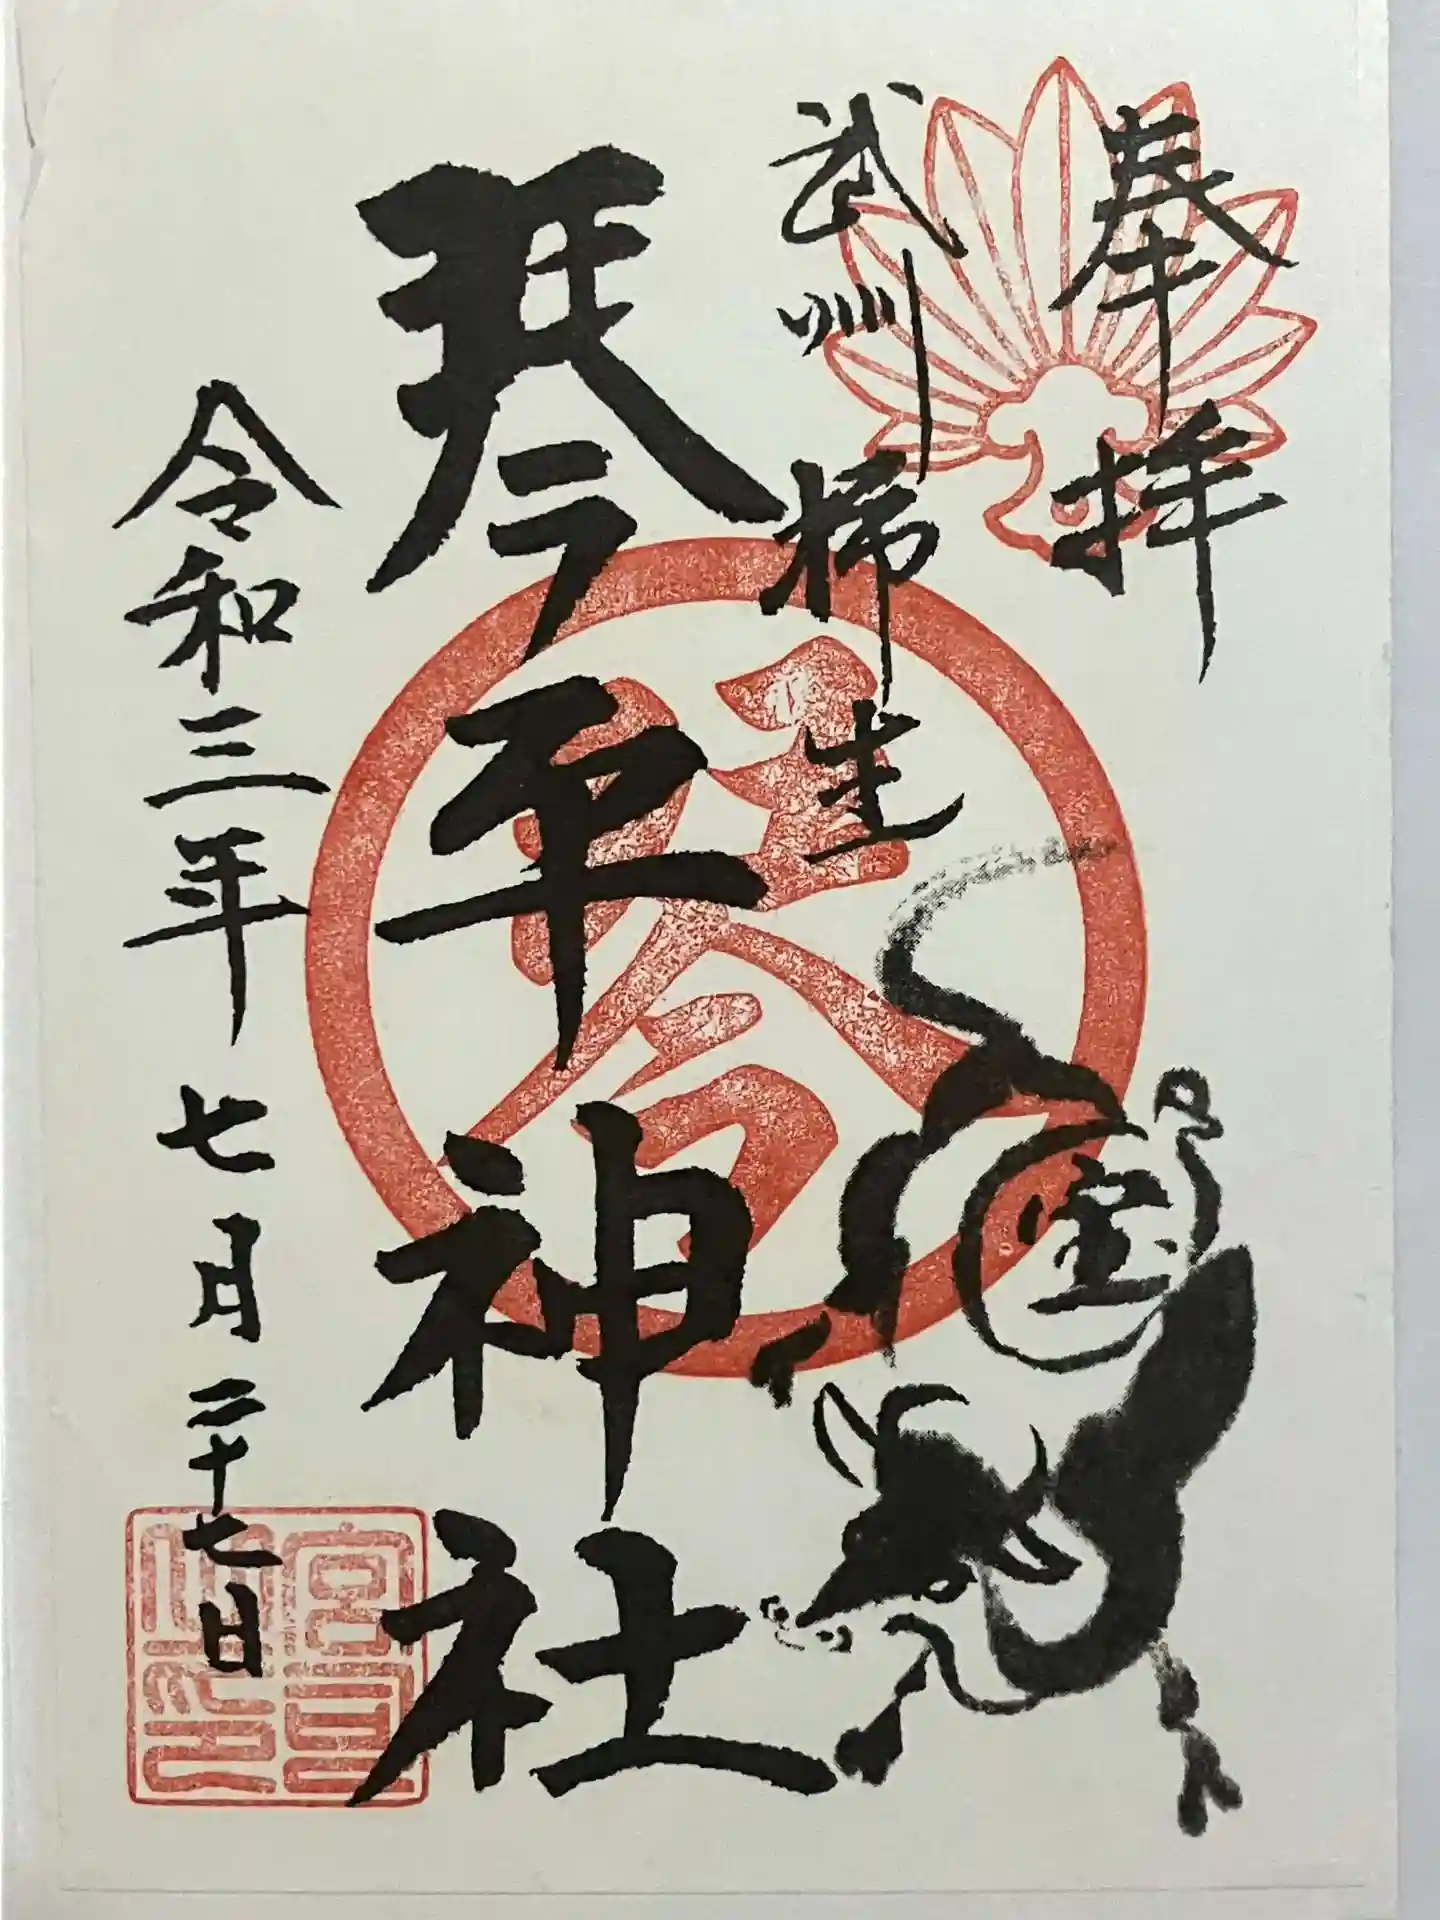 奉拝
武州柿生
琴平神社
令和三年七月二十七日
琴
宝
宮司之印